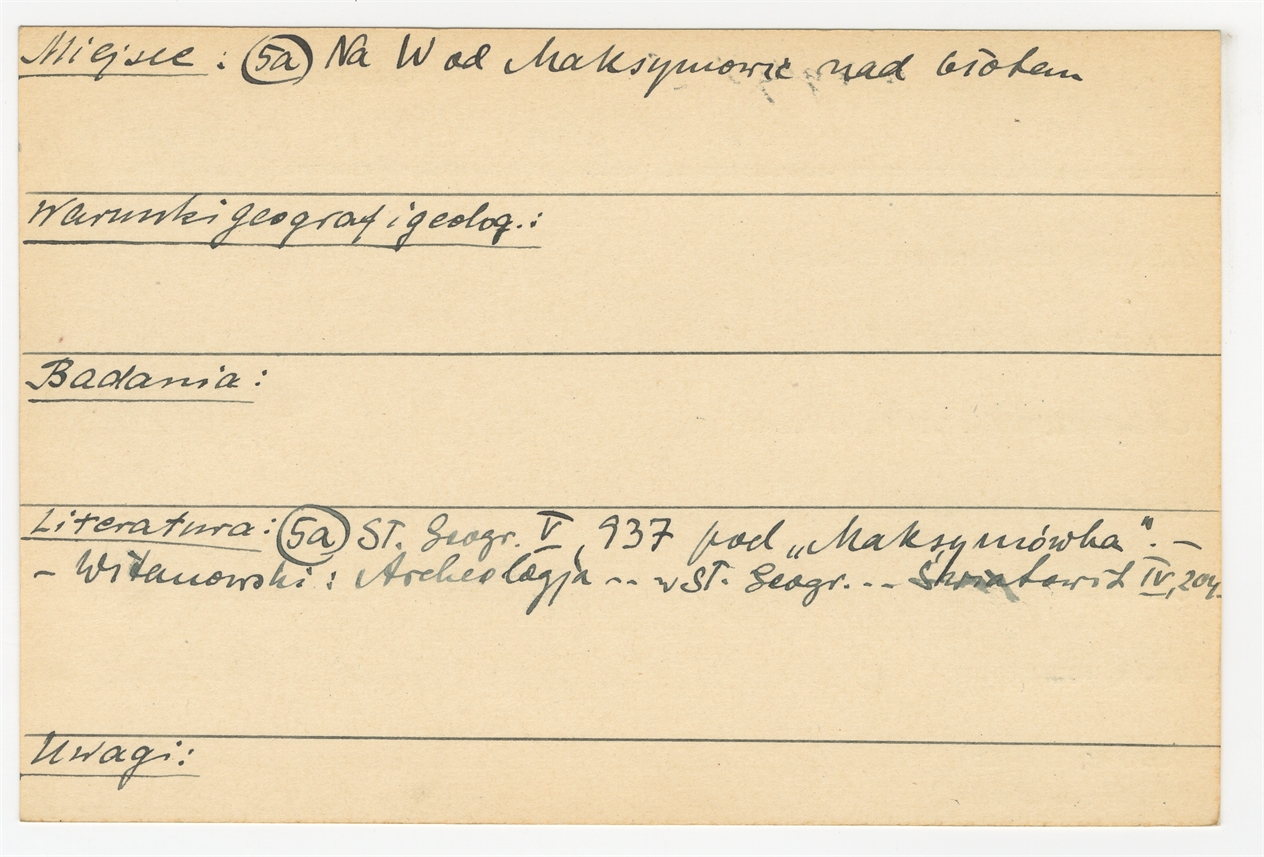 Miejsce : 5a Na W od Maksymowic nad błotem
Warunki geograf i geolog.:
Badania :
Literatura : 5a Sł. Geogr. V, 937 pod „Maksymówka". –
– Witanowski : Archeologja -- w Sł. Geogr. -- Światowit IV, 204.
Uwagi :